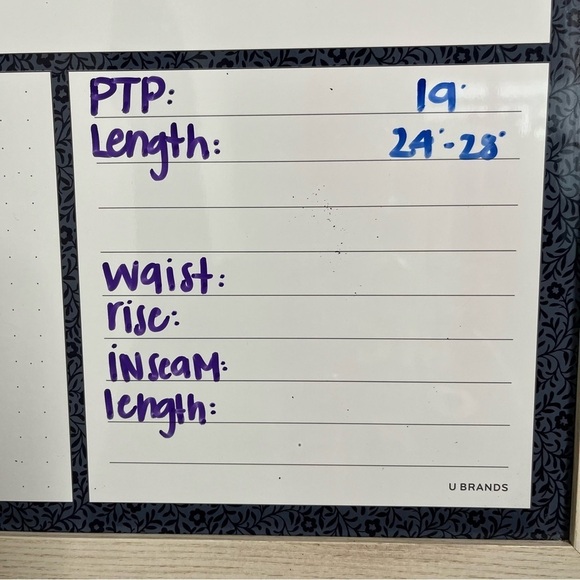 PTP: 19"
Length: 24"-28"
waist:
rise:
iNseaM:
length:
U BRANDS